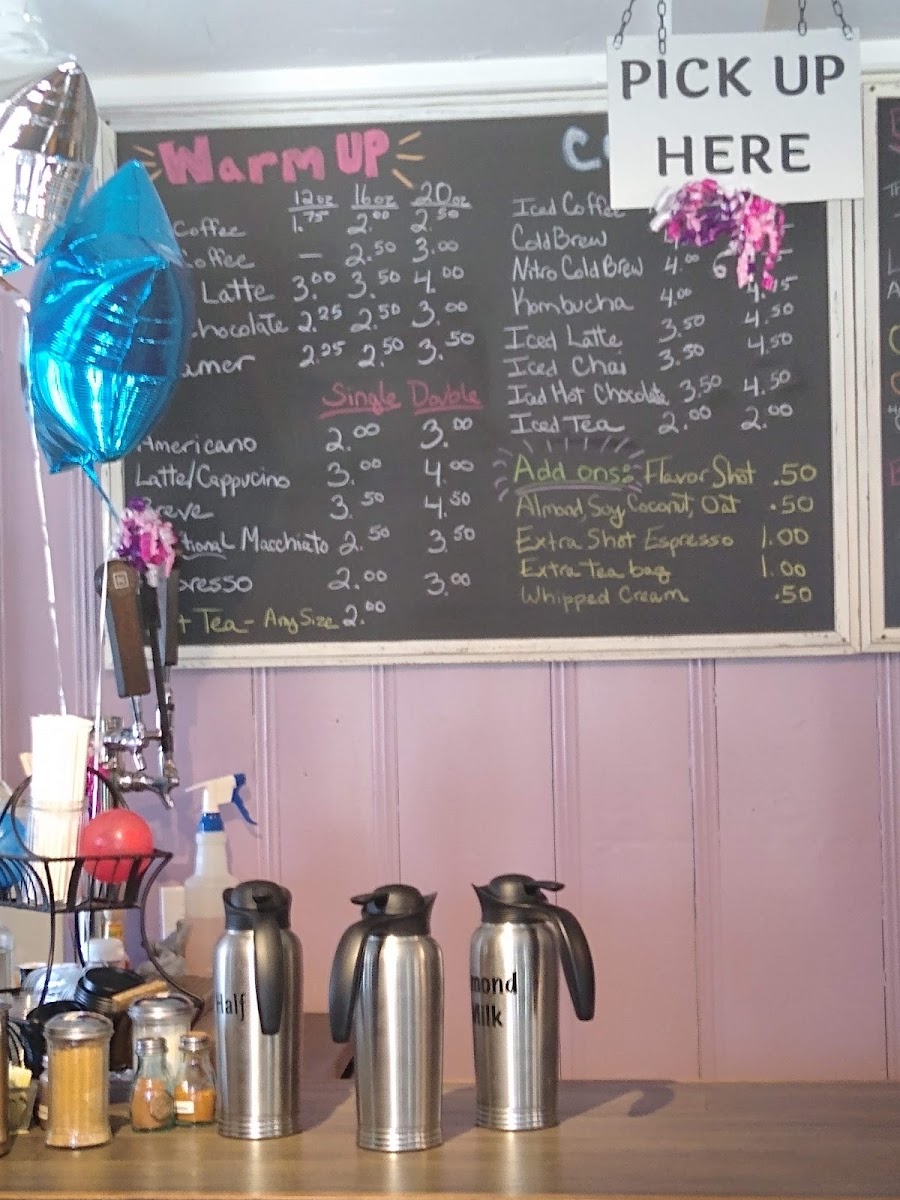 PICK UP
HERE
Warm UP
12oz 16oz 20oz
Coffee 1.75 2.00 2.50
Coffee — 2.50 3.00
Latte 3.00 3.50 4.00
chocolate 2.25 2.50 3.00
amer 2.25 2.50 3.50
Single Double
Americano 2.00 3.00
Latte/Cappucino 3.00 4.00
Breve 3.50 4.50
tional Macchiato 2.50 3.50
presso 2.00 3.00
t Tea - Any Size 2.00
Iced Coffee
Cold Brew
Nitro Cold Brew 4.00
Kombucha 4.00
Iced Latte 3.50 4.50
Iced Chai 3.50 4.50
Iced Hot Chocolate 3.50 4.50
Iced Tea 2.00 2.00
Add ons: Flavor Shot .50
Almond, Soy, Coconut, Oat .50
Extra Shot Espresso 1.00
Extra tea bag 1.00
Whipped Cream .50
Half
mond
Milk